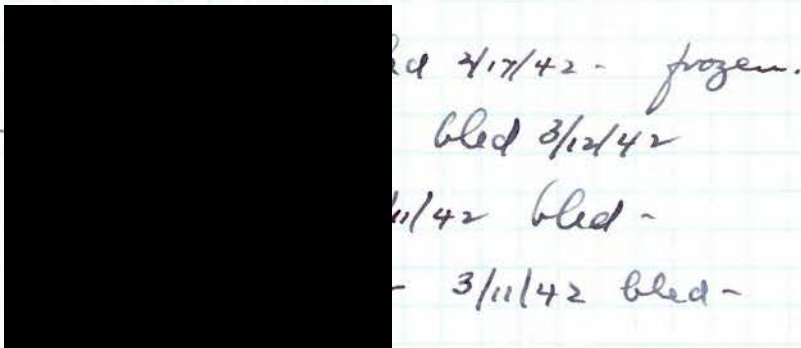 2/17/42 - frozen.
bled 3/12/42
11/42 bled -
- 3/11/42 bled -